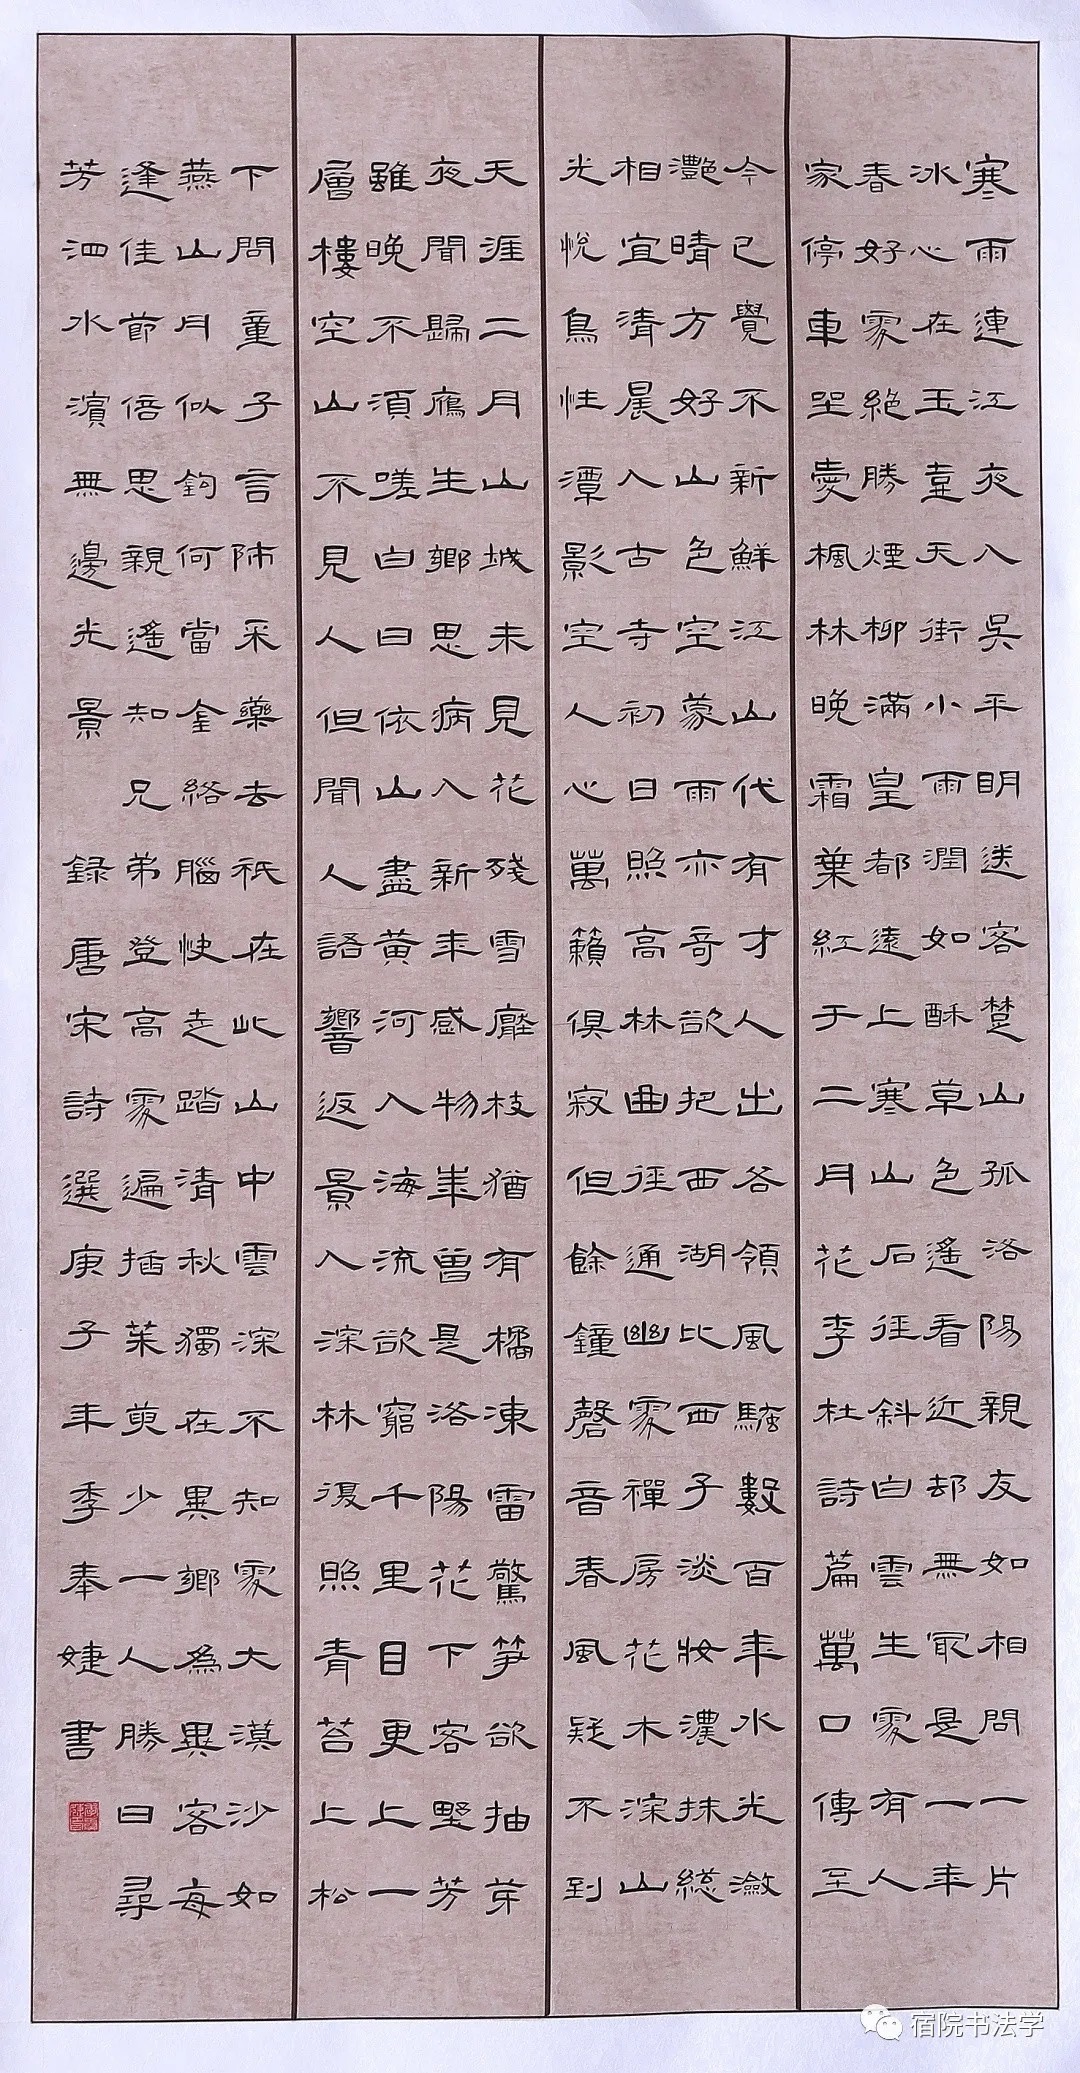 寒雨連江夜入吳平明送客楚山孤洛陽親友如相問一片
冰心在玉壺天街小雨潤如酥草色遙看近却無最是一年
春好處絕勝煙柳滿皇都遠上寒山石徑斜白雲生處有人
家停車坐愛楓林晚霜葉紅于二月花李杜詩篇萬口傳至
今已覺不新鮮江山代有才人出各領風騷數百年水光瀲
灩晴方好山色空蒙雨亦奇欲把西湖比西子淡妝濃抹總
相宜清晨入古寺初日照高林曲徑通幽處禪房花木深山
光悅鳥性潭影空人心萬籟俱寂但餘鐘磬音春風疑不到
天涯二月山城未見花殘雪壓枝猶有橘凍雷驚笋欲抽芽
夜聞歸鴈生鄉思病入新年感物華曾是洛陽花下客野芳
雖晚不須嗟白日依山盡黃河入海流欲窮千里目更上一
層樓空山不見人但聞人語響返景入深林復照青苔上松
下問童子言師采藥去祇在此山中雲深不知處大漠沙如
燕山月似鉤何當金絡腦快走踏清秋獨在異鄉為異客每
逢佳節倍思親遙知兄弟登高處遍插茱萸少一人勝日尋
芳泗水濱無邊光景 錄唐宋詩選庚子年季奉婕書
宿院书法学